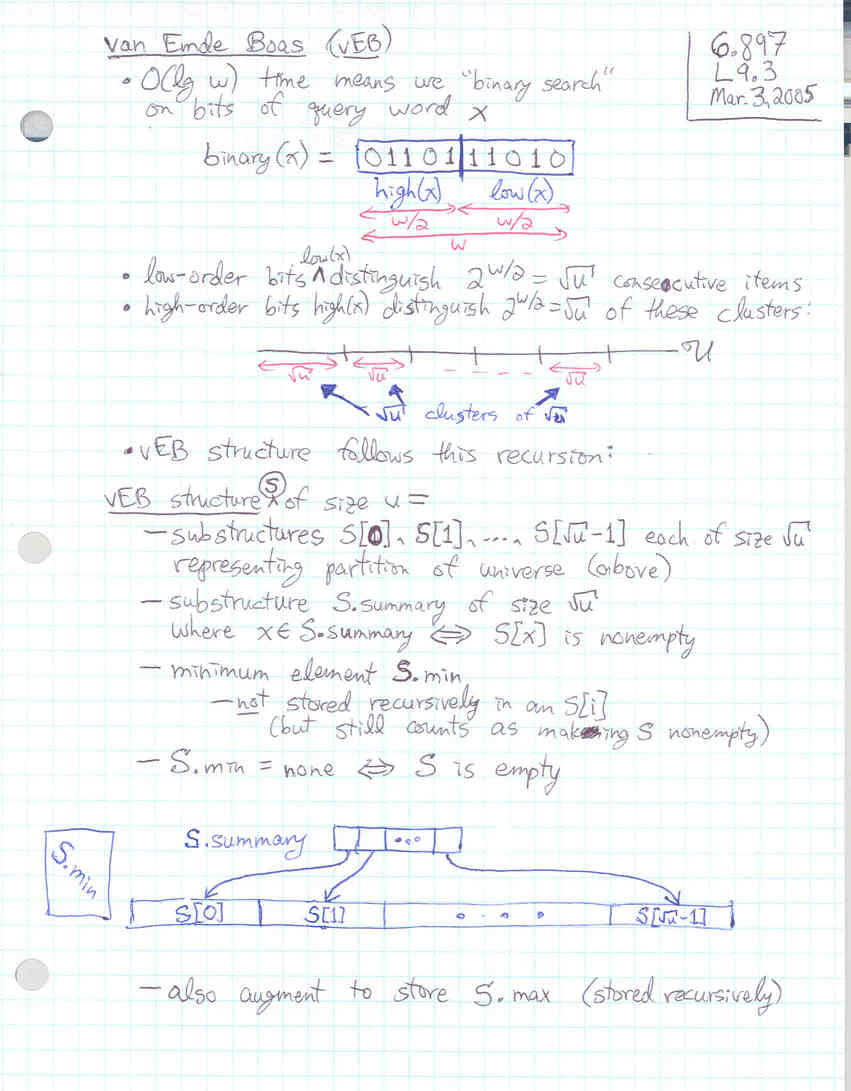 van Emde Boas (vEB)
6.897
L9.3
Mar. 3, 2005
• O(lg w) time means we "binary search"
on bits of query word x
binary(x) = 01101 11010
high(x) low(x)
w/2 w/2
w
• low-order bits low(x) distinguish 2^{w/2} = √u consecutive items
• high-order bits high(x) distinguish 2^{w/2} = √u of these clusters:
U
√u √u - - - - √u
√u clusters of √u
• vEB structure follows this recursion:
vEB structure S of size u =
– substructures S[0], S[1], ..., S[√u-1] each of size √u
representing partition of universe (above)
– substructure S.summary of size √u
where x ∈ S.summary ⇔ S[x] is nonempty
– minimum element S.min
– not stored recursively in an S[i]
(but still counts as making S nonempty)
– S.min = none ⇔ S is empty
S.summary ...
S.min
S[0] S[1] . . . . S[√u-1]
– also augment to store S.max (stored recursively)